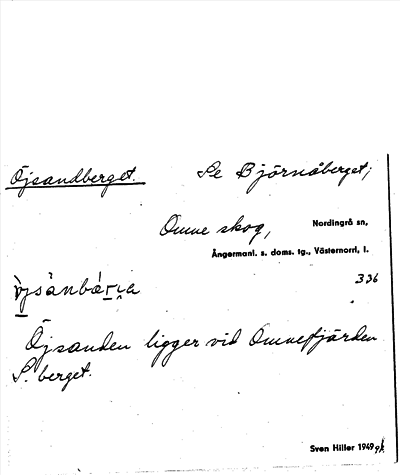 Öjsandberget.
Se Björnåberget;
Omne skog,
Nordingrå sn,
Ångermanl. s. doms. tg., Västernorrl, l.
336
Öjsanden ligger vid Omnefjärden
S. berget.
Sven Hiller 1949